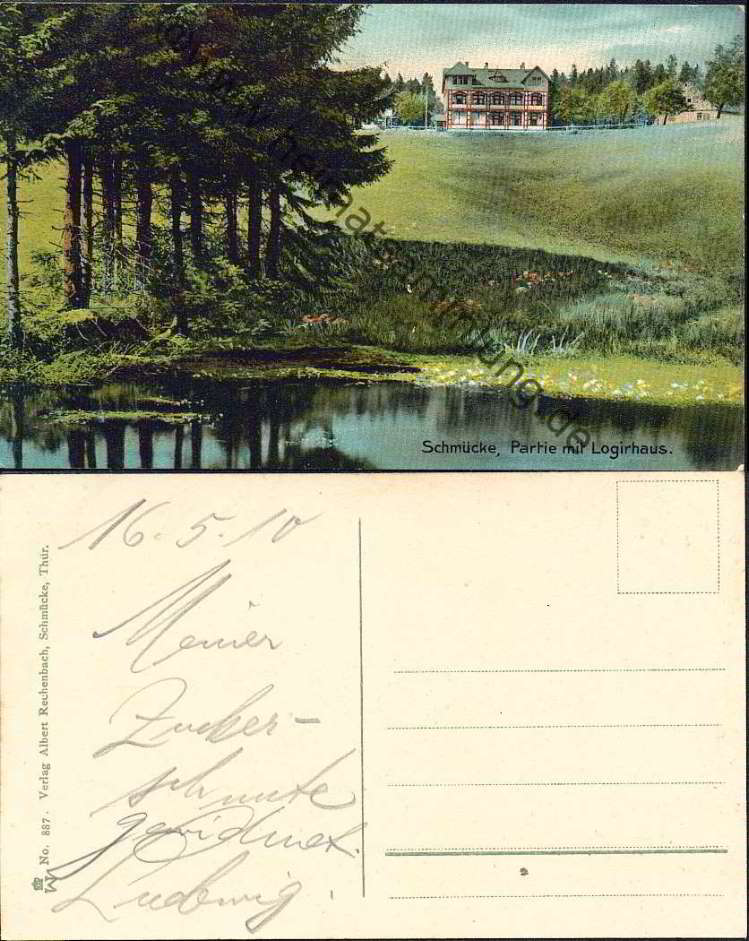 www.heimatsammlung.de
Schmücke, Partie mit Logirhaus.
16.5.10
Meiner
Zucker-
schnute
gewidmet.
Ludwig.
No. 887. Verlag Albert Rechenbach, Schmücke, Thür.